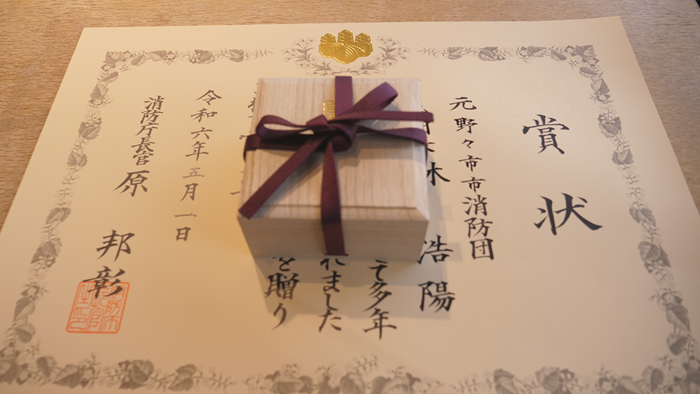 賞状
元野々市市消防団
木 浩陽
て多年
れました
を贈り
令和六年五月一日
消防庁長官 原 邦彰